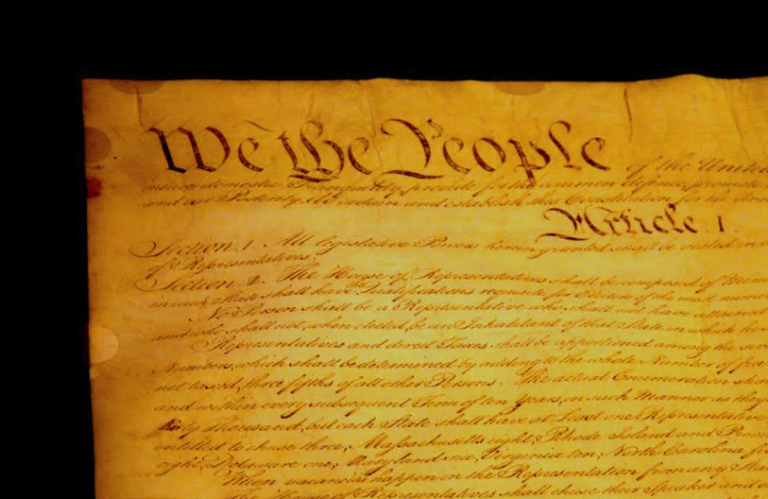 We the People of the United
insure domestic Tranquility, provide for the common defence, promote
and our Posterity, do ordain and establish this Constitution for the
Article I.
Section. 1. All legislative Powers herein granted shall be vested in
of Representatives.
Section. 2. The House of Representatives shall be composed of Mem
in each State shall have Qualifications requisite for Electors of the most numer
No Person shall be a Representative who shall not have attained
and who shall not, when elected, be an Inhabitant of that State in which he
Representatives and direct Taxes shall be apportioned among the seve
Numbers, which shall be determined by adding to the whole Number of free
not taxed, three fifths of all other Persons. The actual Enumeration sha
and within every subsequent Term of ten Years, in such Manner as they
thirty Thousand, but each State shall have at Least one Representative
entitled to chuse three, Massachusetts eight, Rhode Island and Provi
eight, Delaware one, Maryland six, Virginia ten, North Carolina fi
When vacancies happen in the Representation from any Sta
the House of Representatives shall chuse their Speaker and o